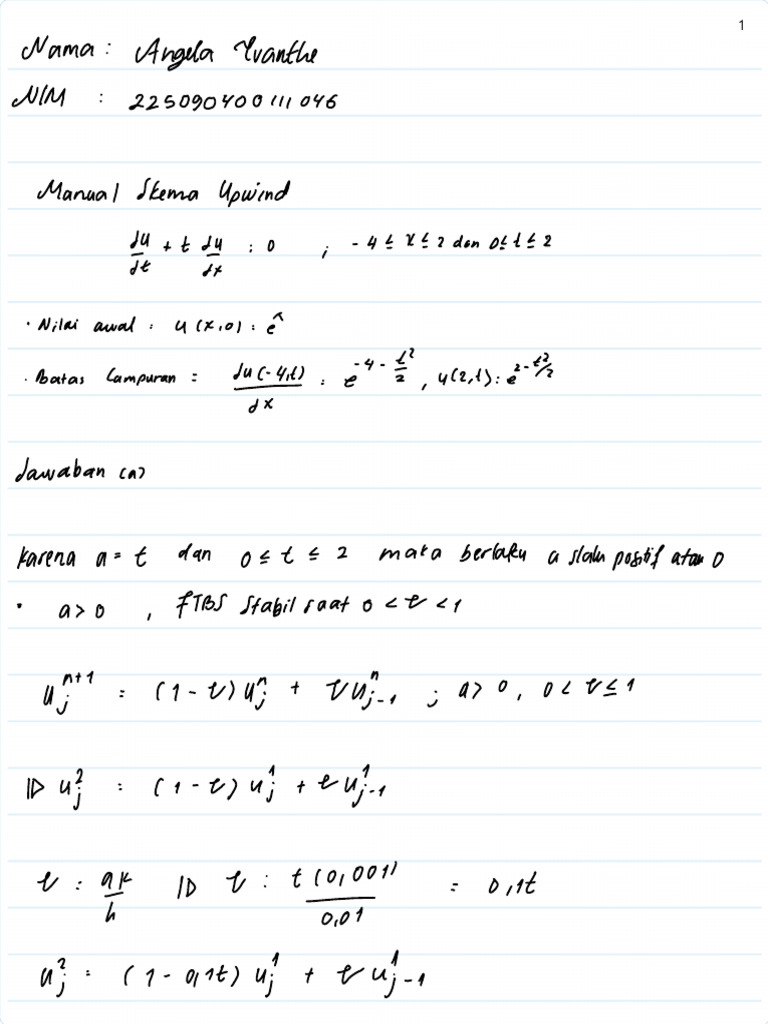 1
Nama : Angela Yvanthe
NIM : 225090400111046
Manual Skema Upwind
du/dt + t du/dx : 0 ; -4 ≤ x ≤ 2 dan 0 ≤ t ≤ 2
· Nilai awal : u(x,0) : e^x
· Batas Campuran = du(-4,t)/dx : e^(-4 - t²/2) , u(2,t) : e^(2 - t²/2)
Jawaban (a)
karena a = t dan 0 ≤ t ≤ 2 maka berlaku a slalu positif atau 0
· a > 0 , FTBS stabil saat 0 < τ < 1
u_j^(n+1) = (1 - τ) u_j^n + τ u_(j-1)^n ; a > 0, 0 < τ ≤ 1
|▷ u_j^2 : (1 - τ) u_j^1 + τ u_(j-1)^1
τ : ak/h |▷ τ : t(0,001)/0,01 = 0,1t
u_j^2 = (1 - 0,1t) u_j^1 + τ u_(j-1)^1